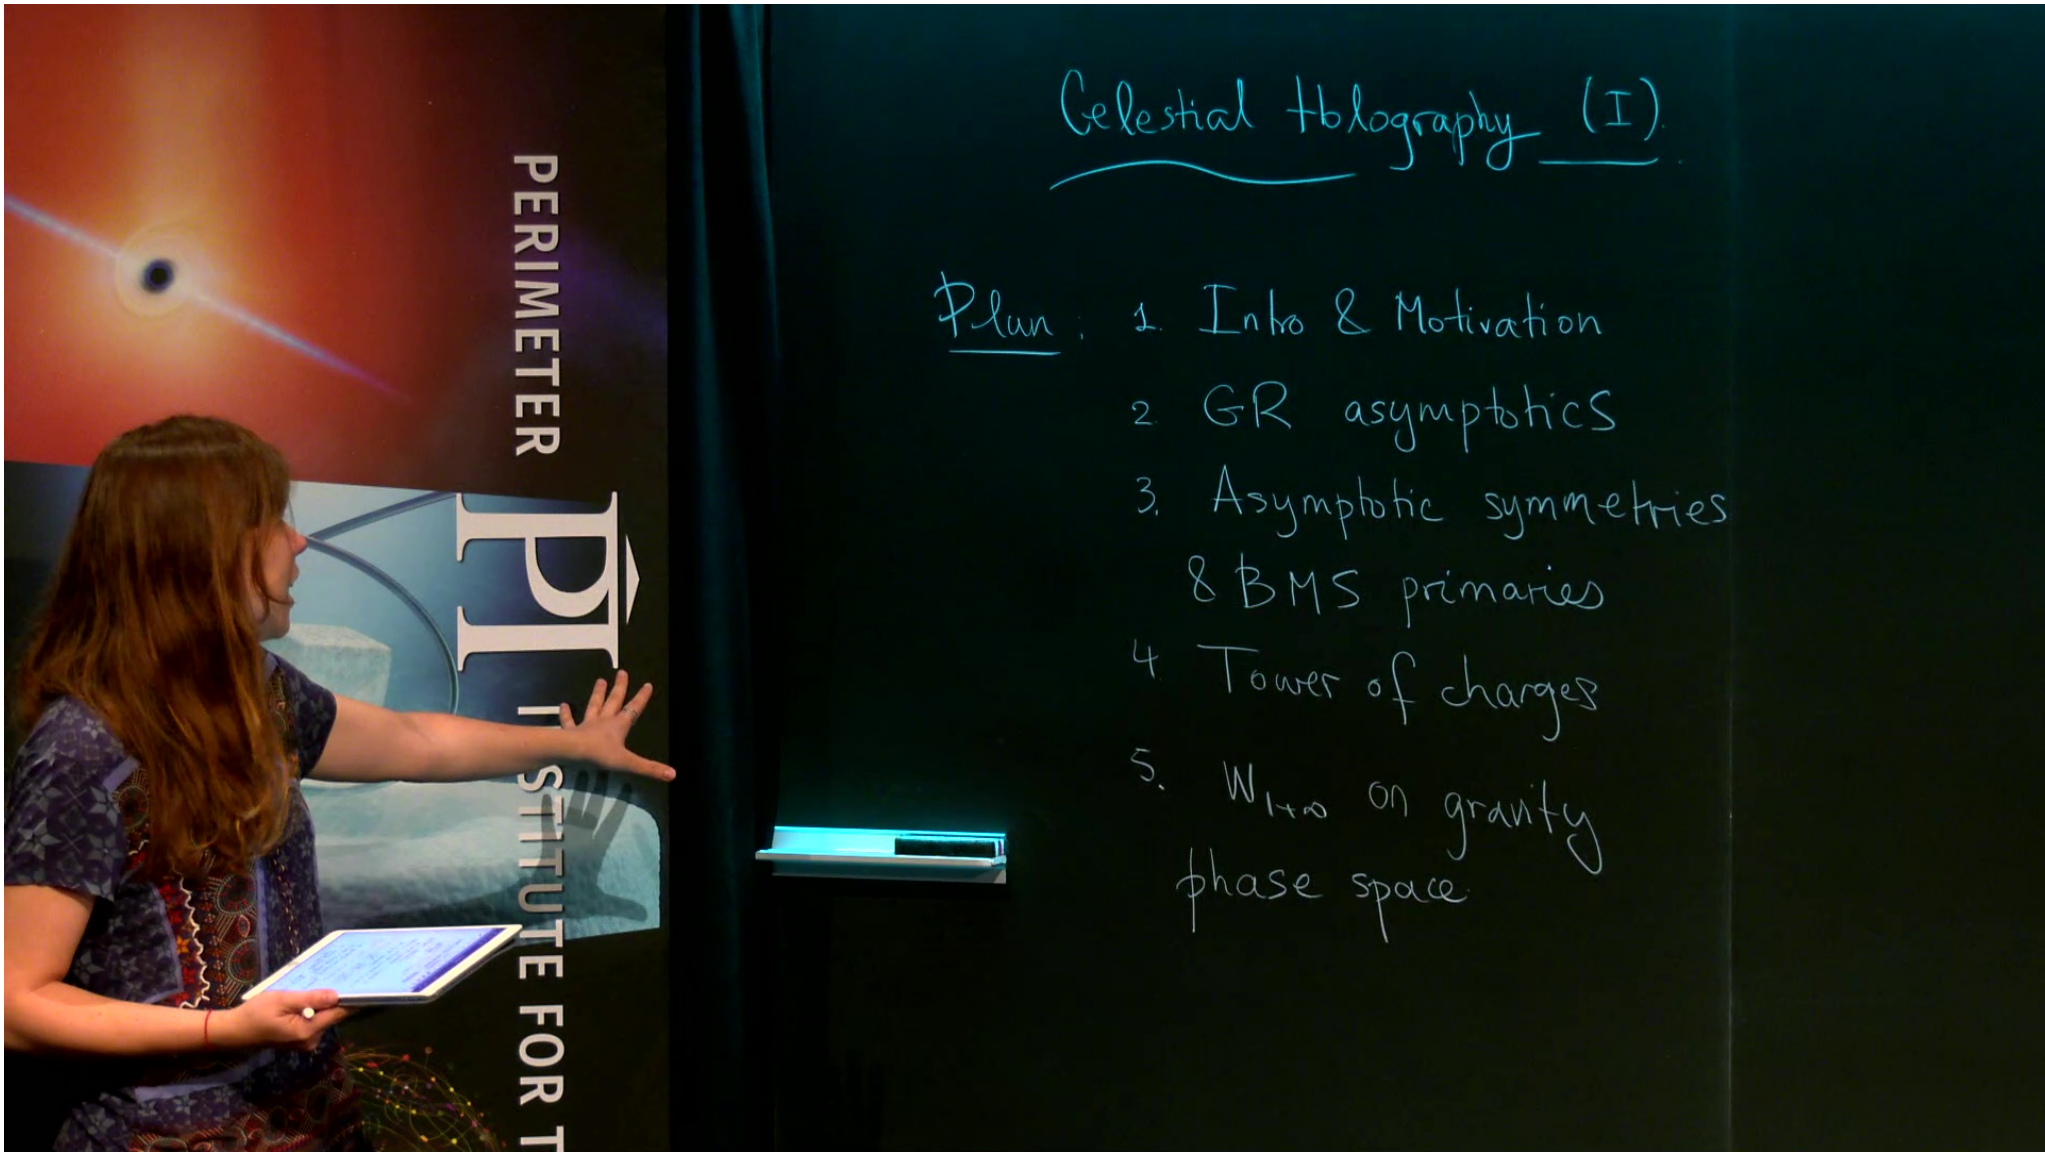 PERIMETER
PI
INSTITUTE FOR T
Celestial Holography (I).
Plan: 1. Intro & Motivation
2. GR asymptotics
3. Asymptotic symmetries
& BMS primaries
4 Tower of charges
5. W1+∞ on gravity
phase space